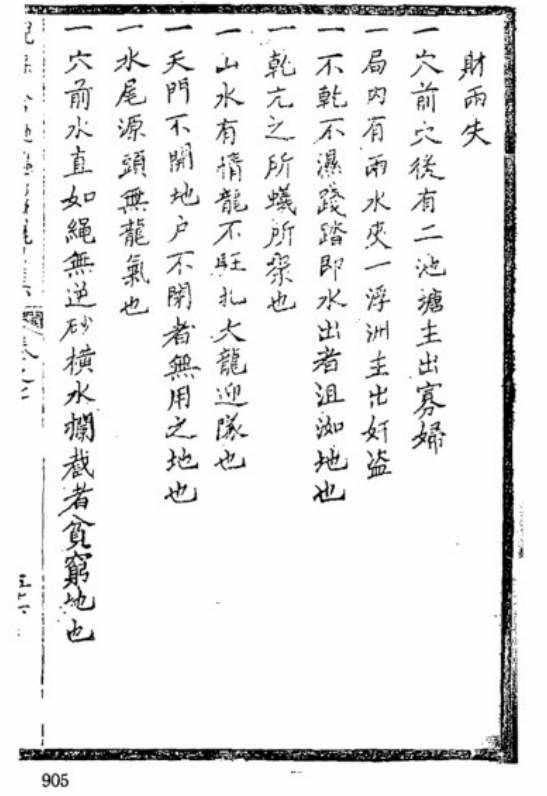 財兩失
一穴前穴後有二池塘主出寡婦
一局內有兩水夾一浮洲主出奸盗
一不乾不濕踐踏即水出者沮洳地也
一乾亢之所蟻所聚也
一山水有情龍不駐扎大龍迎隊也
一天門不開地户不閉者無用之地也
一水尾源頭無龍氣也
一穴前水直如繩無逆砂橫水攔截者貧窮地也
905